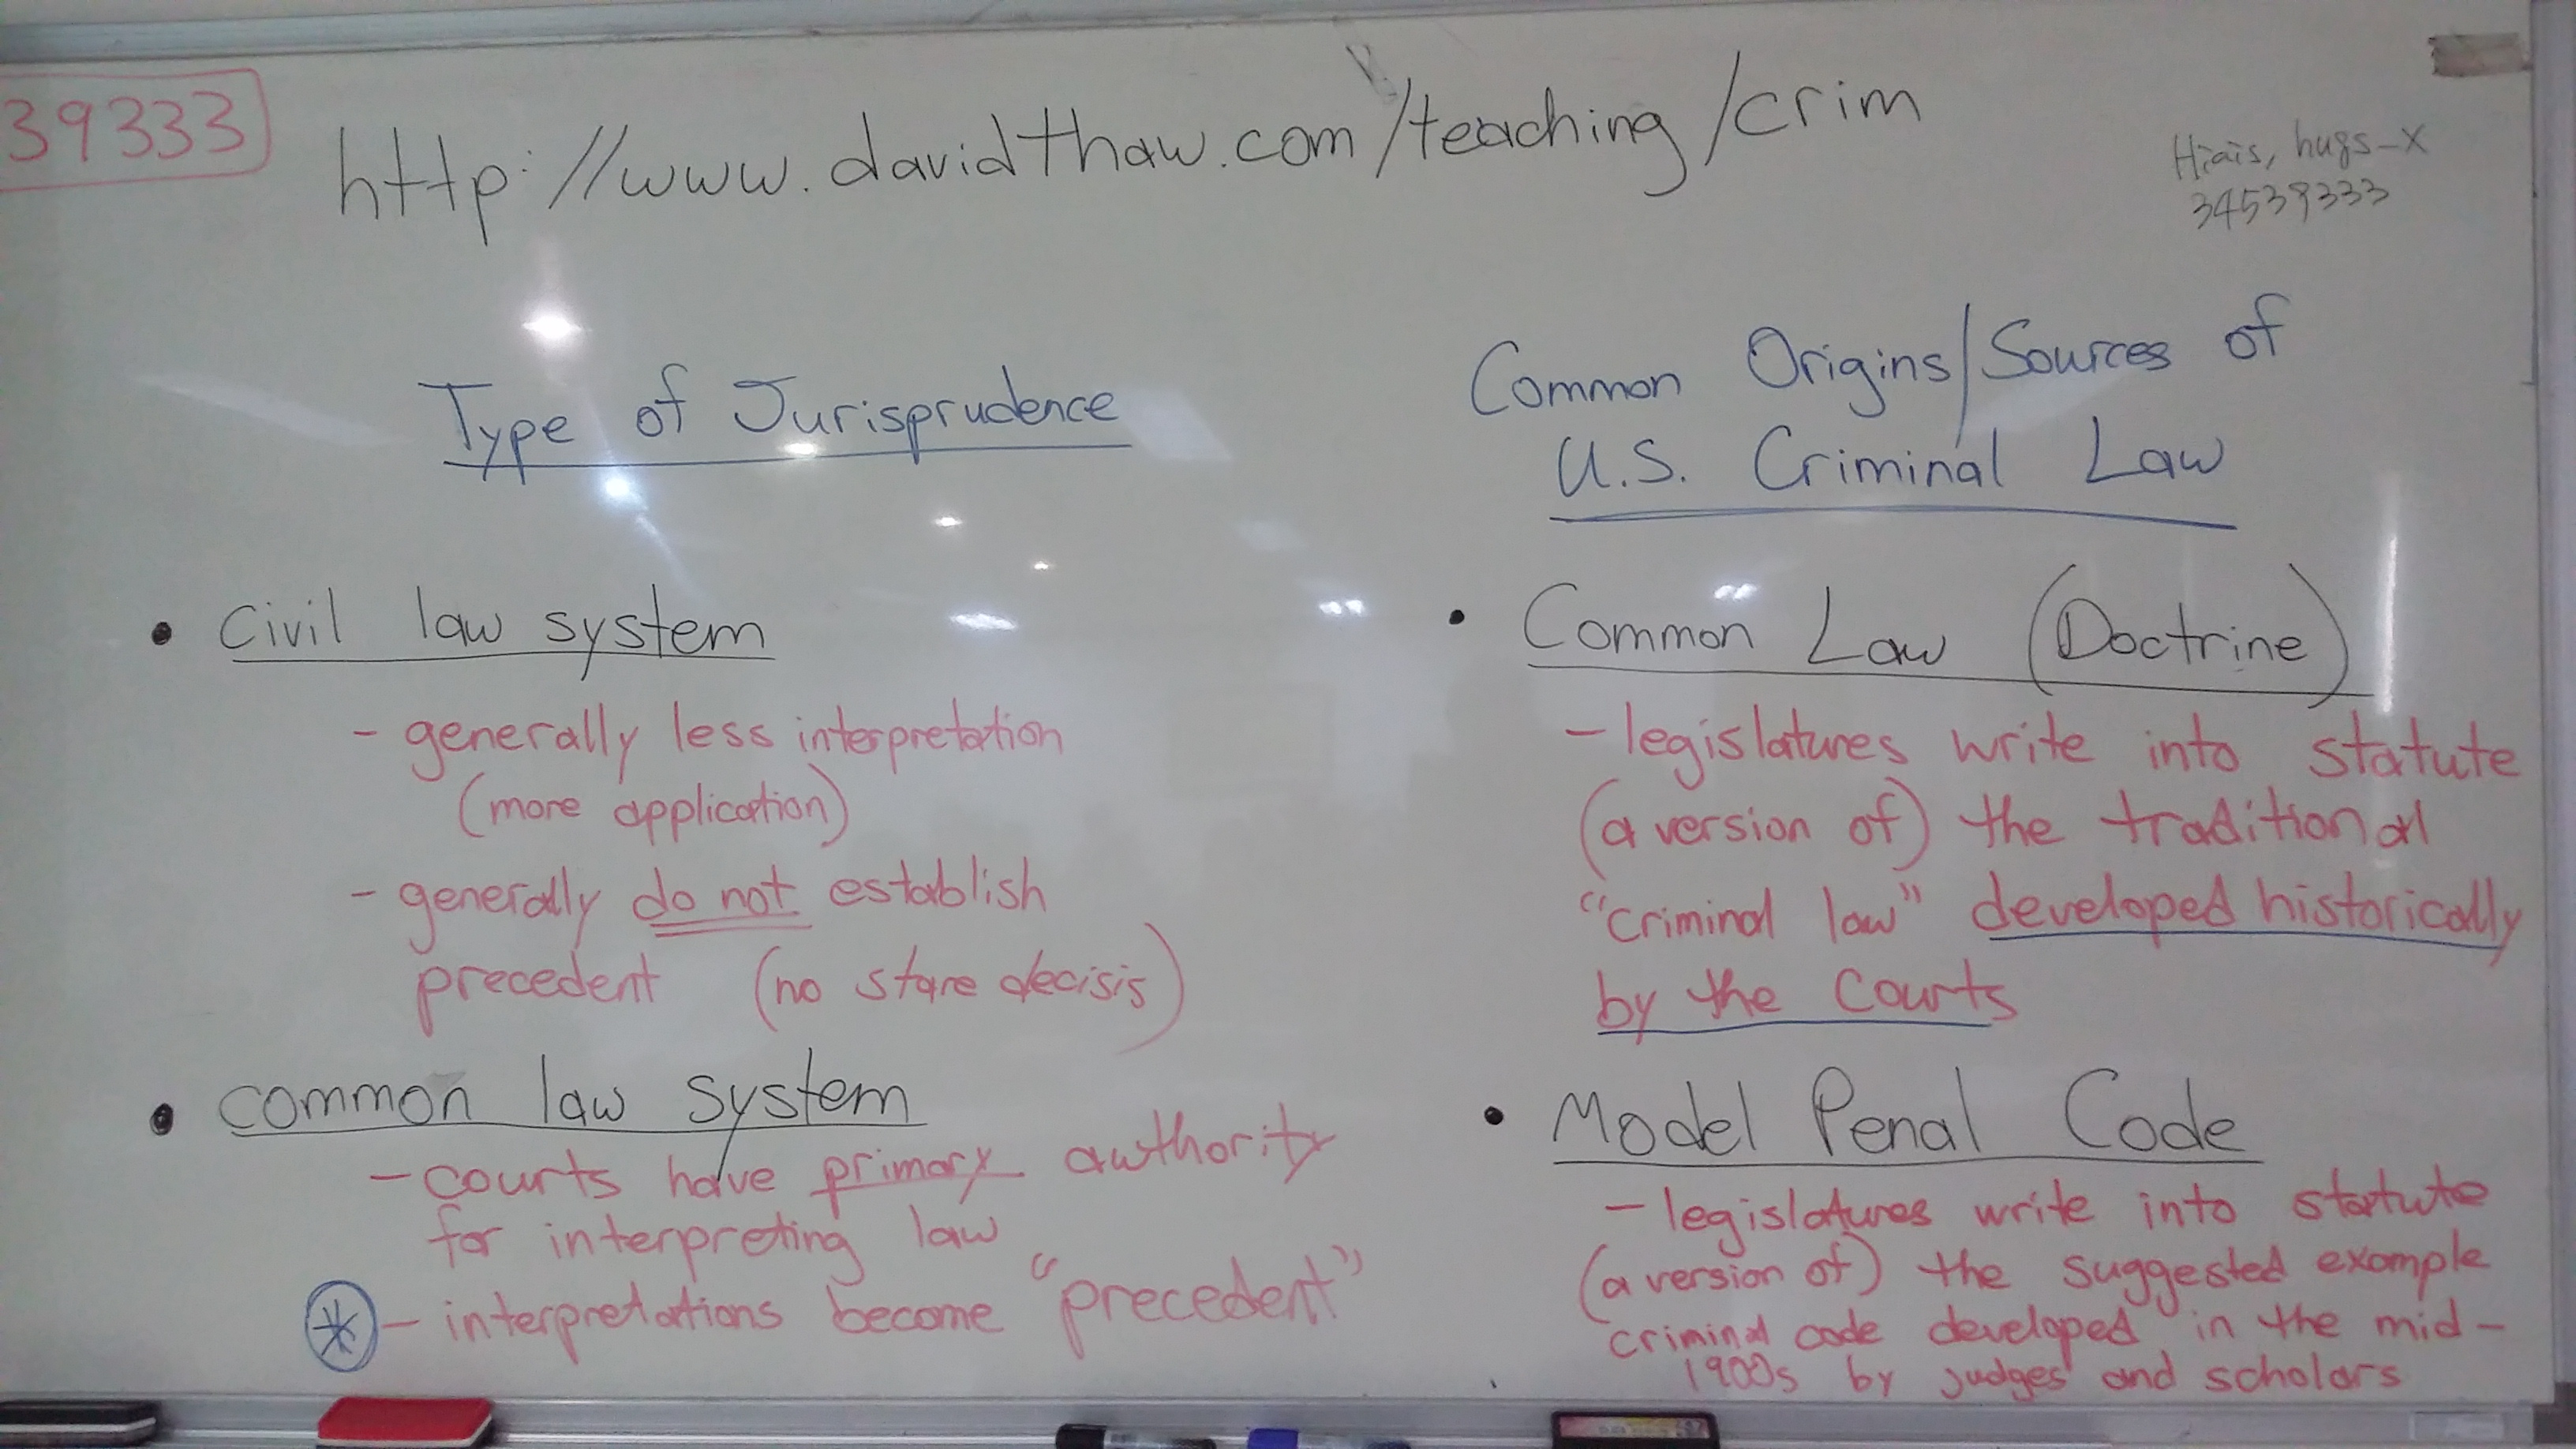 39333
http://www.davidthaw.com/teaching/crim
hugs-x
34539333
Type of Jurisprudence
• civil law system
- generally less interpretation
(more application)
- generally do not establish
precedent (no stare decisis)
• common law system
- courts have primary authority
for interpreting law
* - interpretations become "precedent"
Common Origins/Sources of
U.S. Criminal Law
• Common Law (Doctrine)
- legislatures write into statute
(a version of) the traditional
"criminal law" developed historically
by the courts
• Model Penal Code
- legislatures write into statute
(a version of) the suggested example
criminal code developed in the mid-
1900s by judges and scholars